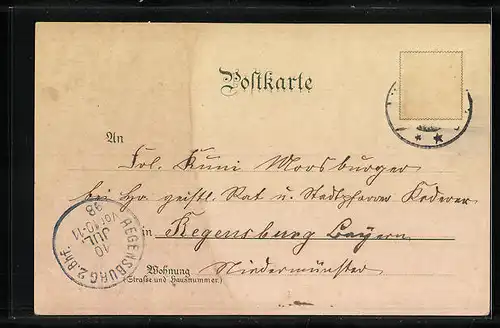 Postkarte
An
Frl. Kuni Moosburger
bei Hr. geistl. Rat u. Stadtpfarrer Kederer
in Regensburg Bayern
Wohnung Niedermünster
(Strasse und Hausnummer.)
REGENSBURG 2 Bhf.
10
JUL
Vor 10-11
98